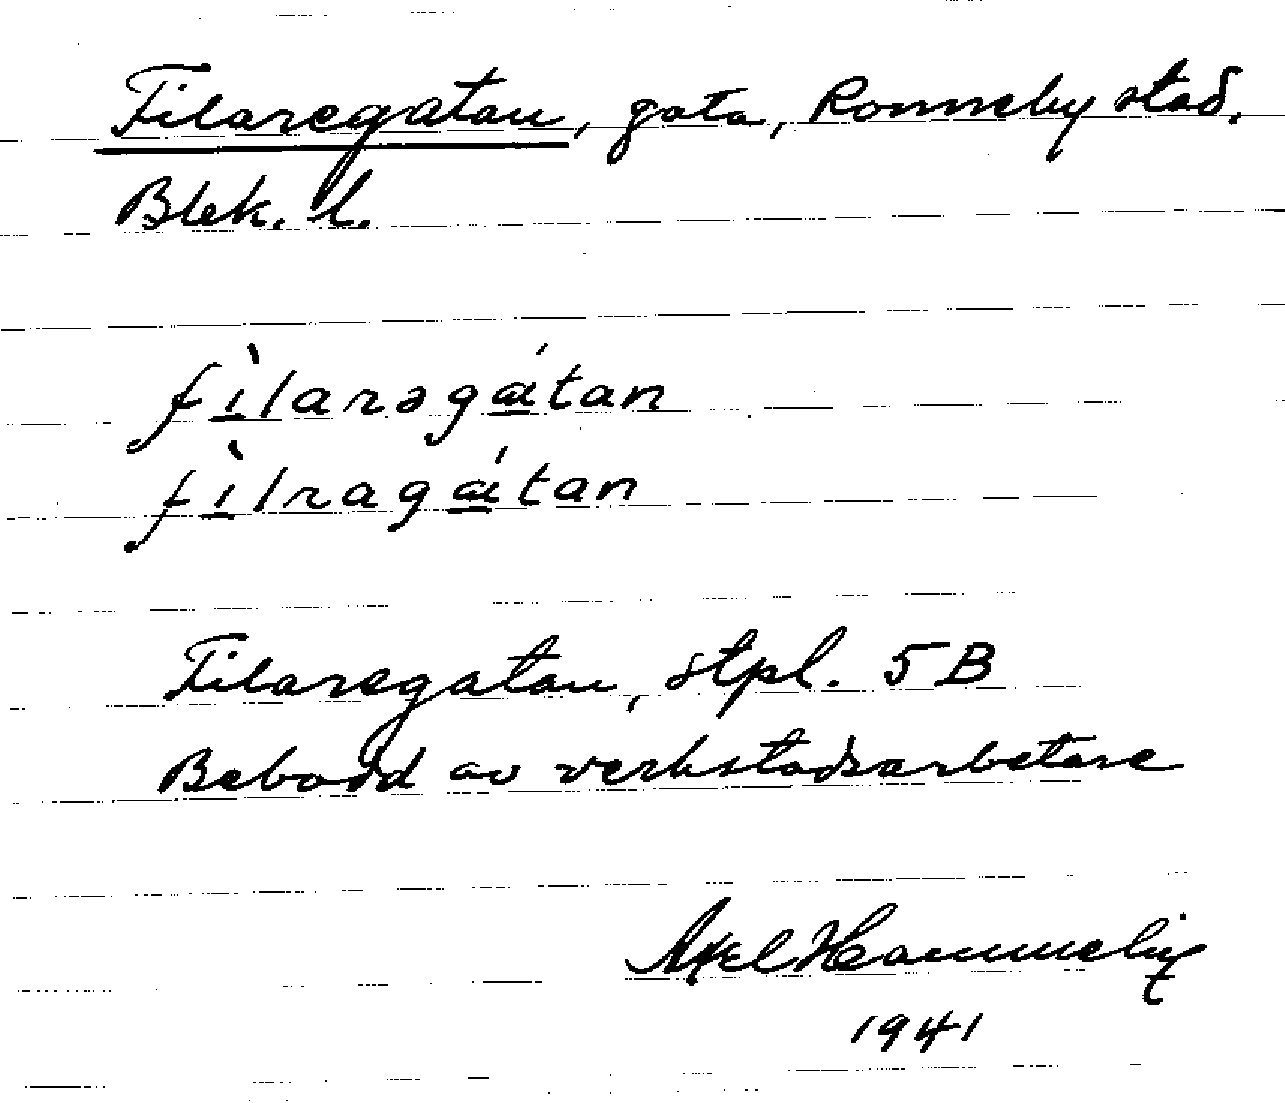 Filaregatan, gata, Ronneby stad.
Blek. l.
fìlarəgátan
fìlragátan
Filaregatan, stpl. 5B
Bebodd av verkstadsarbetare
Axel
1941